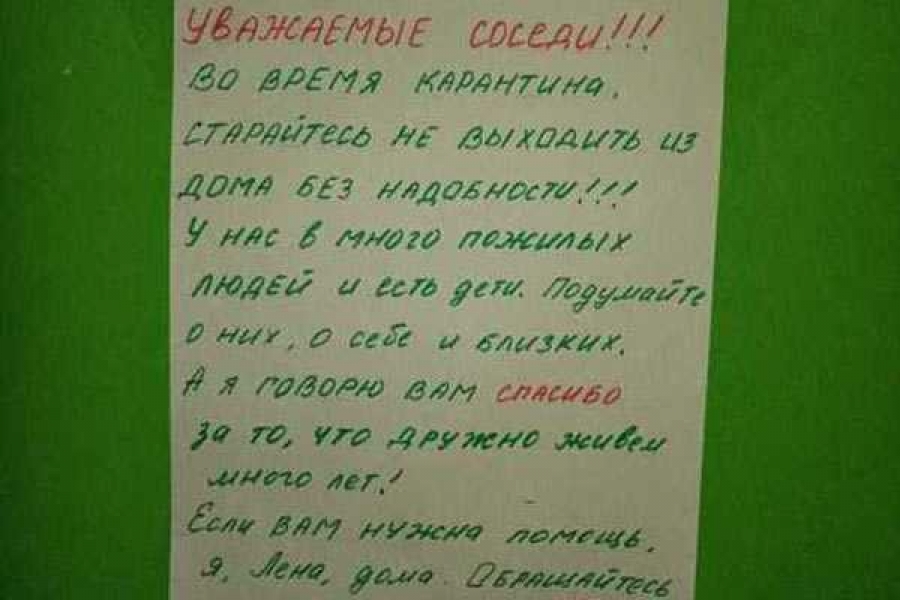 УВАЖАЕМЫЕ СОСЕДИ!!!
ВО ВРЕМЯ КАРАНТИНА,
СТАРАЙТЕСЬ НЕ ВЫХОДИТЬ ИЗ
ДОМА БЕЗ НАДОБНОСТИ!!!
У НАС В МНОГО ПОЖИЛЫХ
ЛЮДЕЙ И ЕСТЬ ДЕТИ. Подумайте
О НИХ, О СЕБЕ И БЛИЗКИХ.
А Я ГОВОРЮ ВАМ СПАСИБО
За ТО, ЧТО ДРУЖНО ЖИВЕМ
МНОГО ЛЕТ!
Если ВАМ НУЖНА ПОМОЩЬ,
Я, Лена, дома. ОБРАЩАЙТЕСЬ